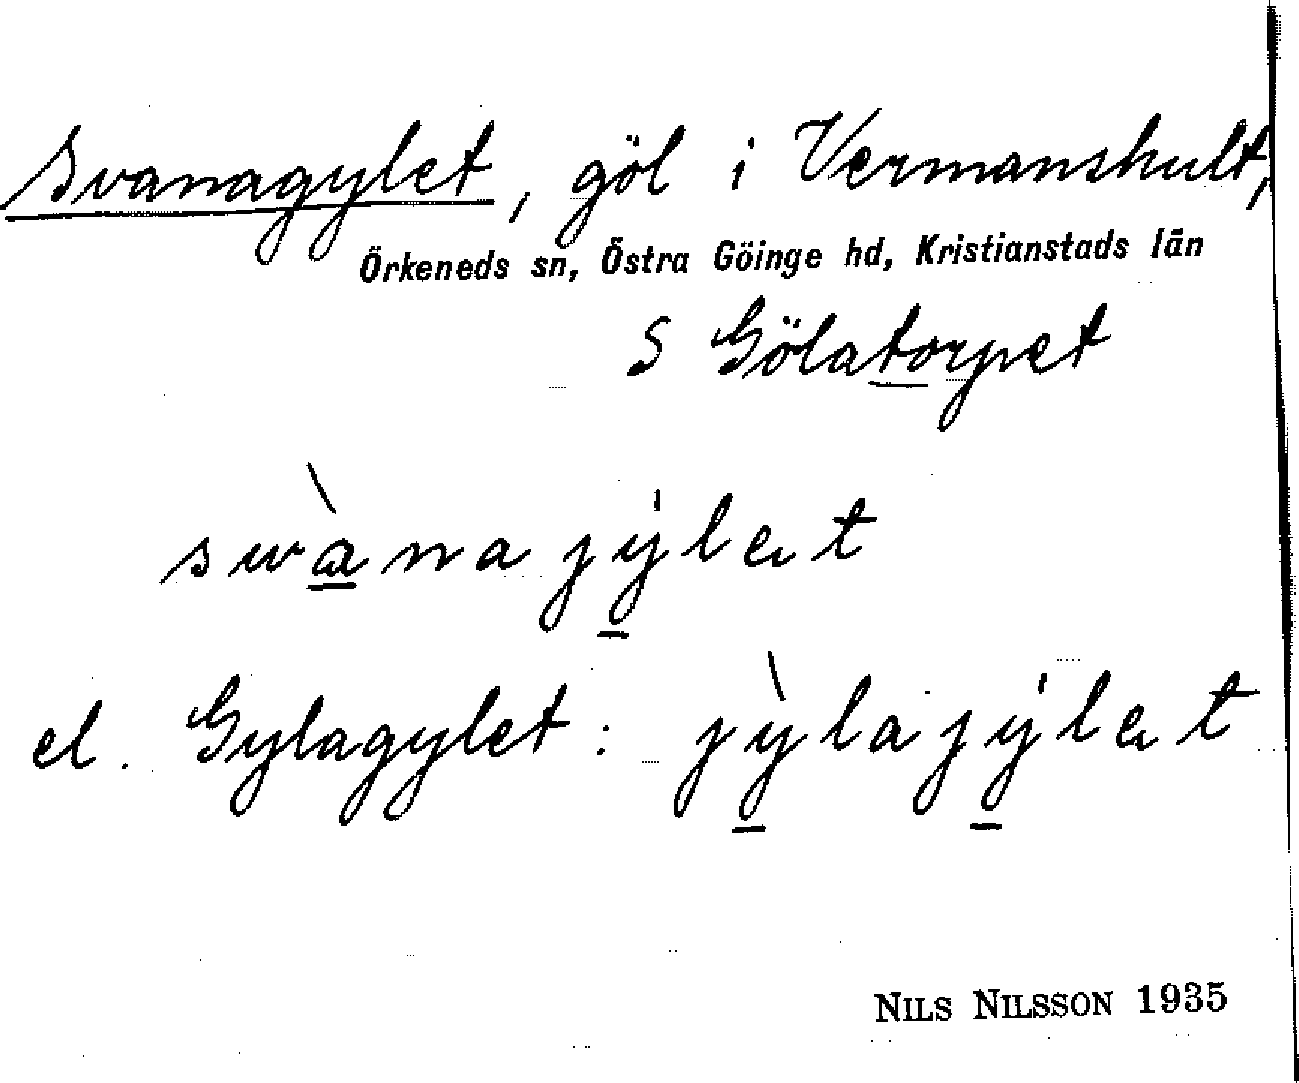 Svanagylet, göl i Vermanshult,
Örkeneds sn, Östra Göinge hd, Kristianstads län
S Gölatorpet
swànajýlet
el. Gylagylet: jỳlajýlet
NILS NILSSON 1935